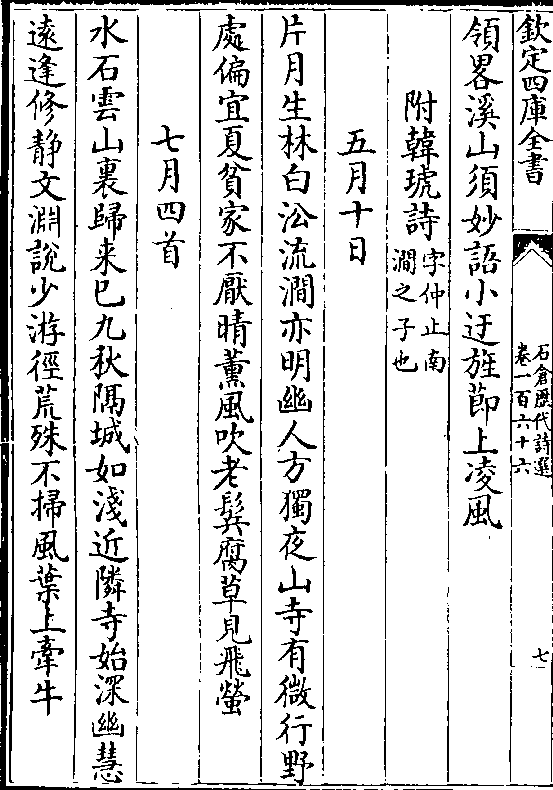 欽定四庫全書
石倉歷代詩選
卷一百六十六
七
領畧溪山須妙語小迂旌節上凌風
附韓琥詩字仲止南
澗之子也
五月十日
片月生林白沿流澗亦明幽人方獨夜山寺有微行野
處偏宜夏貧家不厭晴薰風吹老鬂腐草見飛螢
七月四首
水石雲山裏歸来已九秋隔城如淺近隣寺始深幽慧
遠逢修静文淵說少游徑荒殊不掃風葉上牽牛